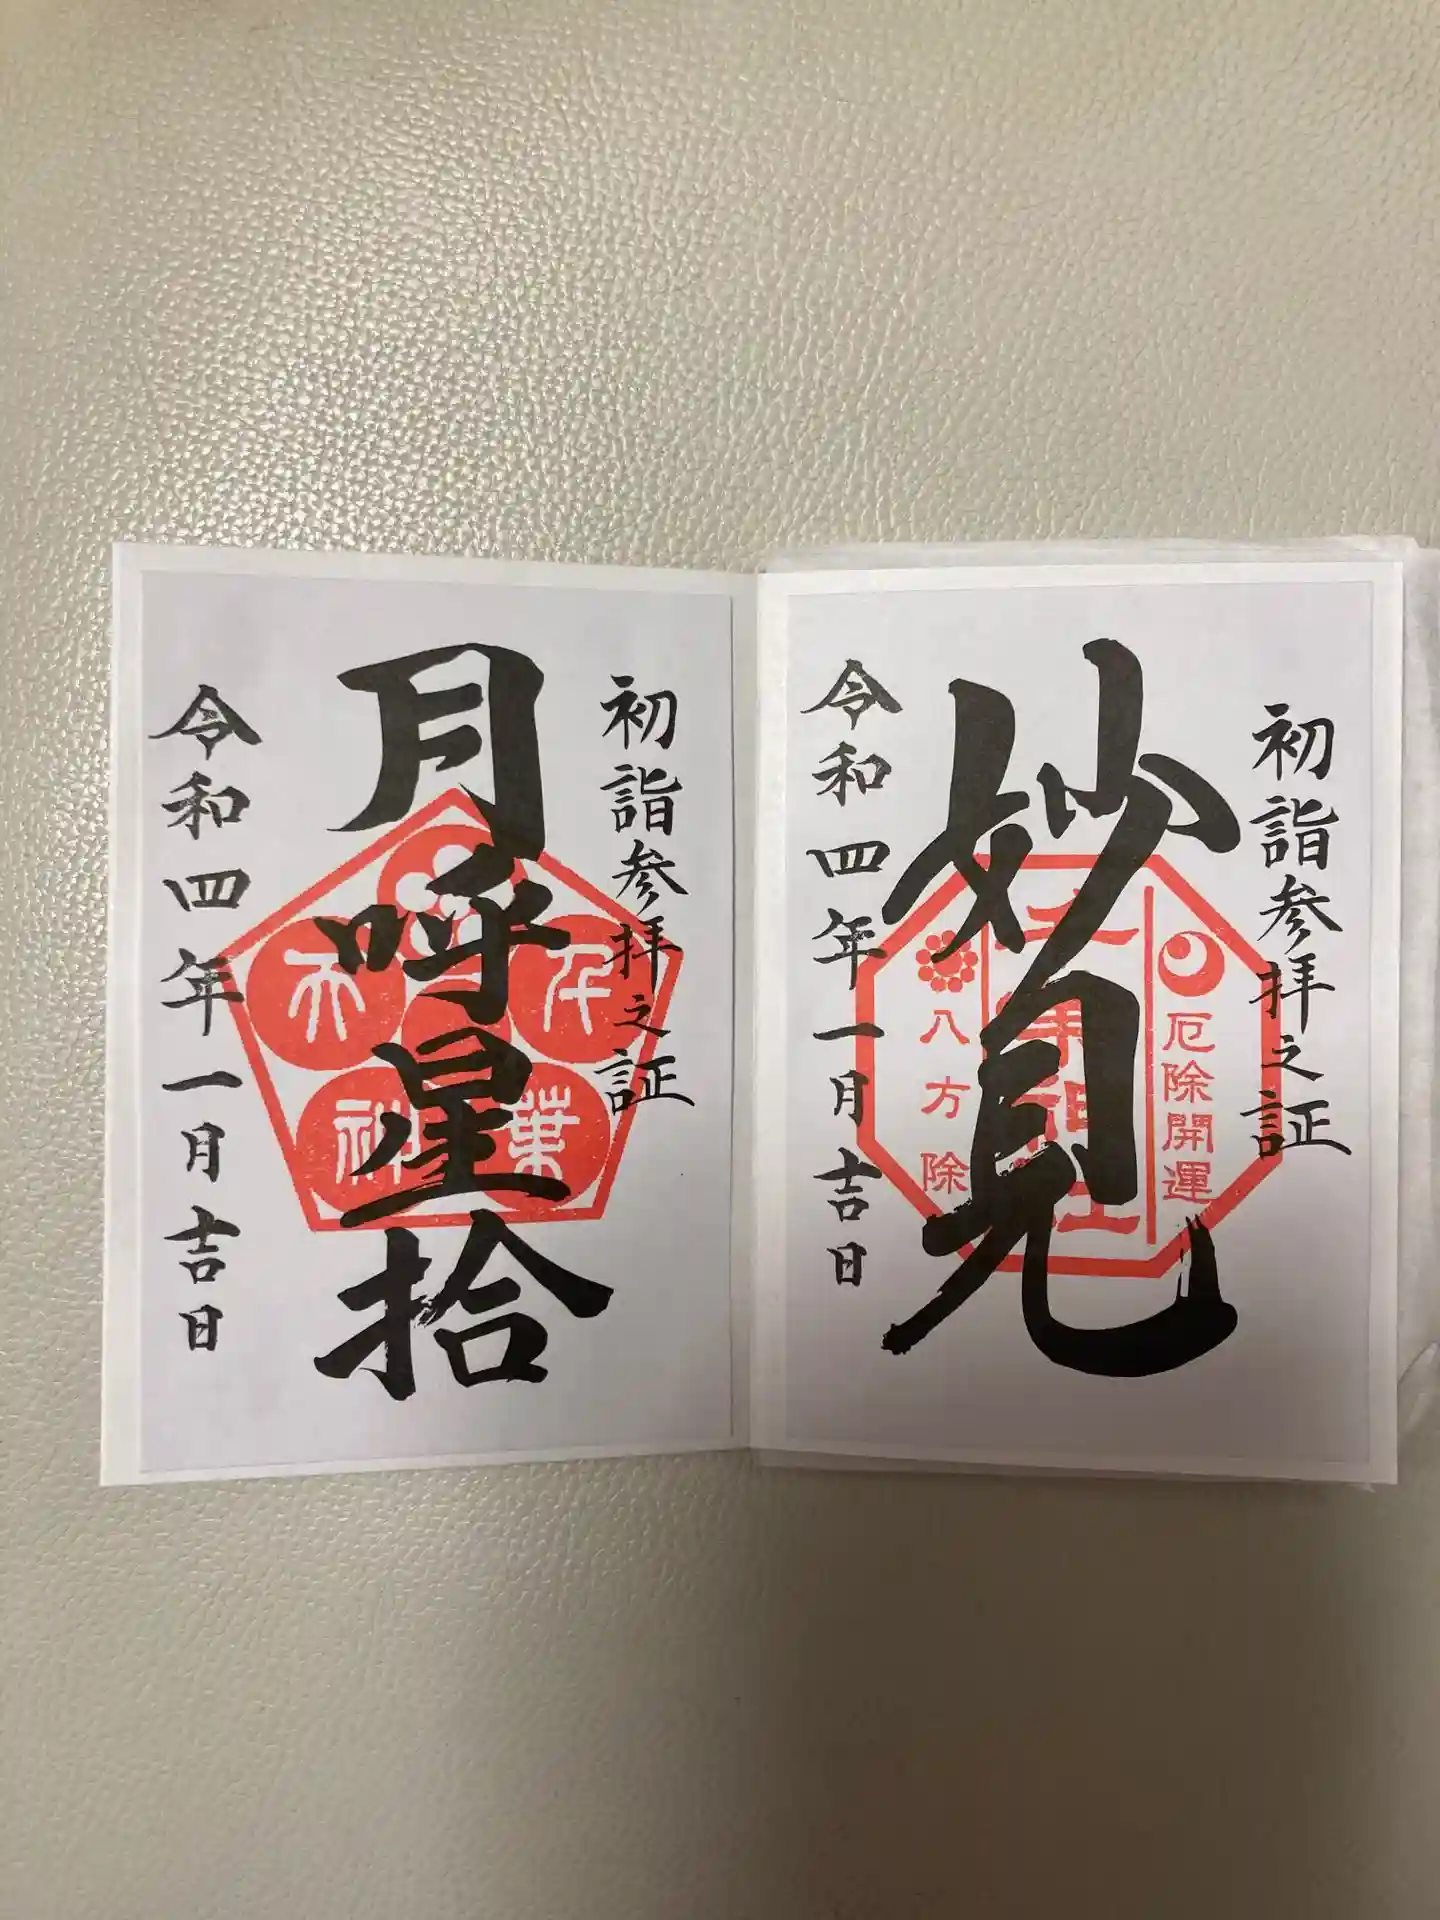 初詣参拝之証
妙見
厄除開運
八方除
令和四年一月吉日
初詣参拝之証
月呼星拾
千葉
神
令和四年一月吉日